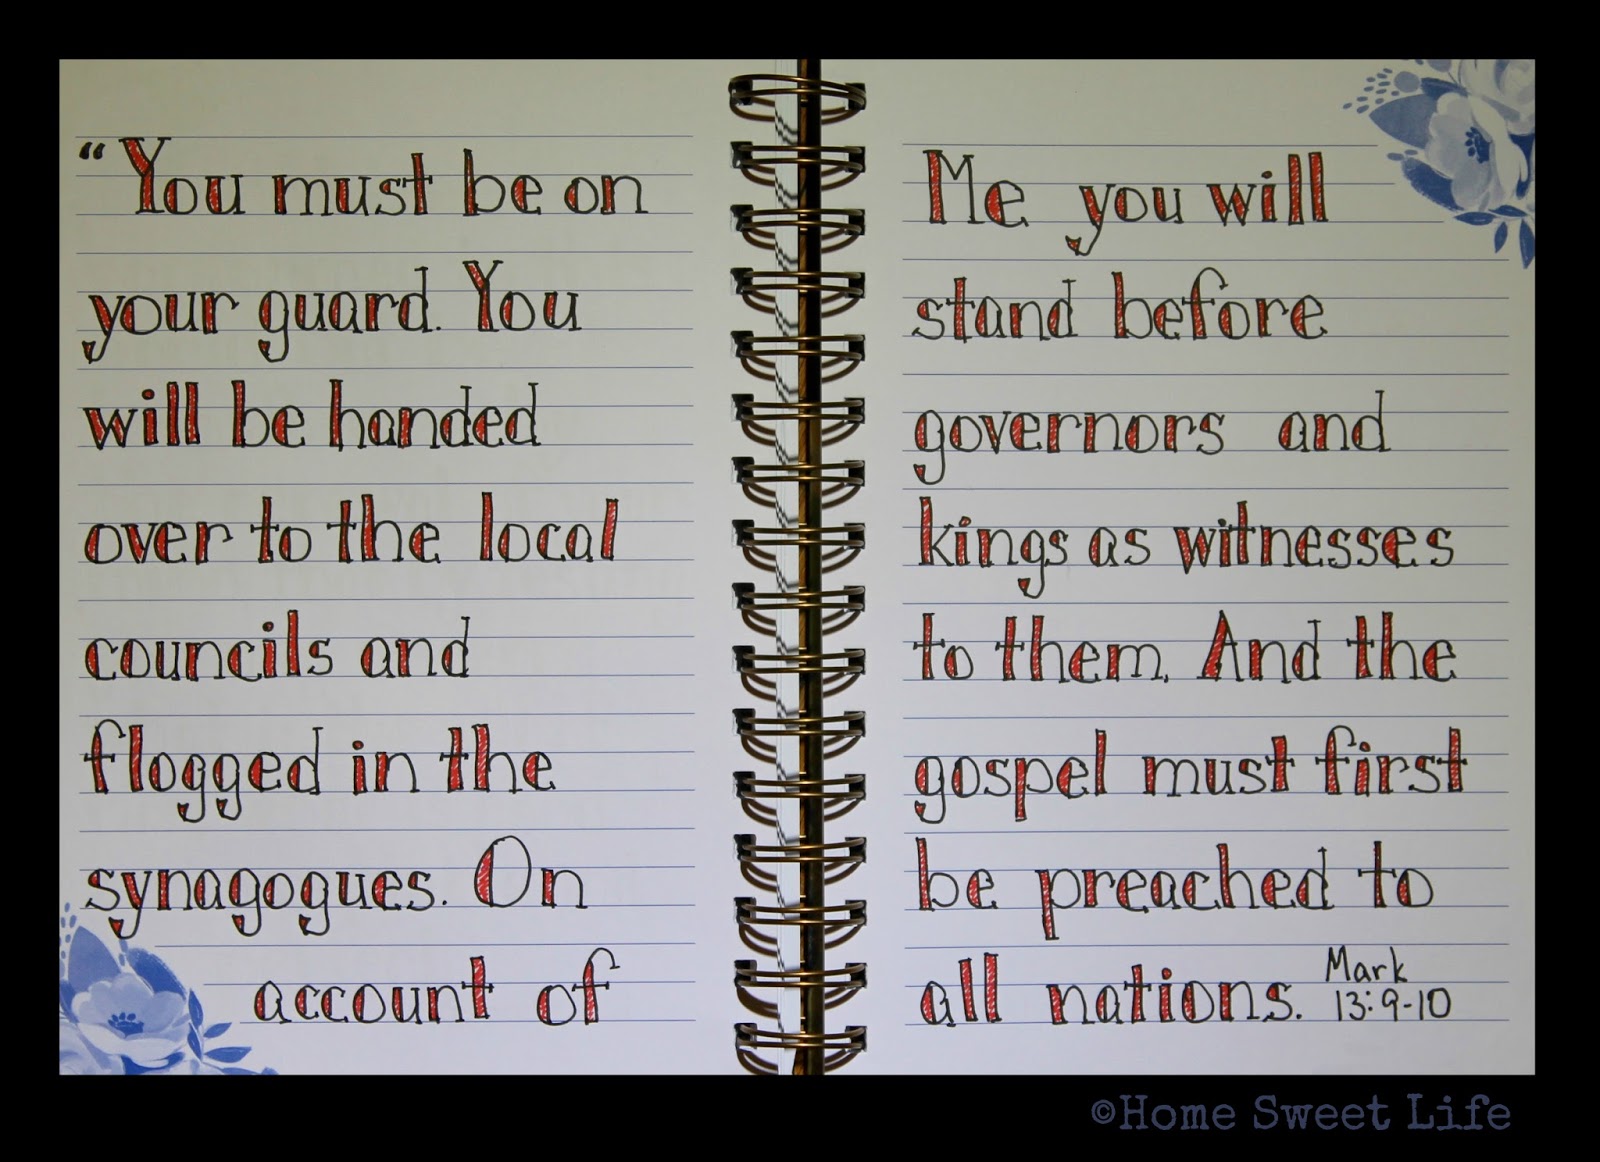 “You must be on
your guard. You
will be handed
over to the local
councils and
flogged in the
synagogues. On
account of
Me you will
stand before
governors and
kings as witnesses
to them. And the
gospel must first
be preached to
all nations. Mark
13:9-10
©Home Sweet Life